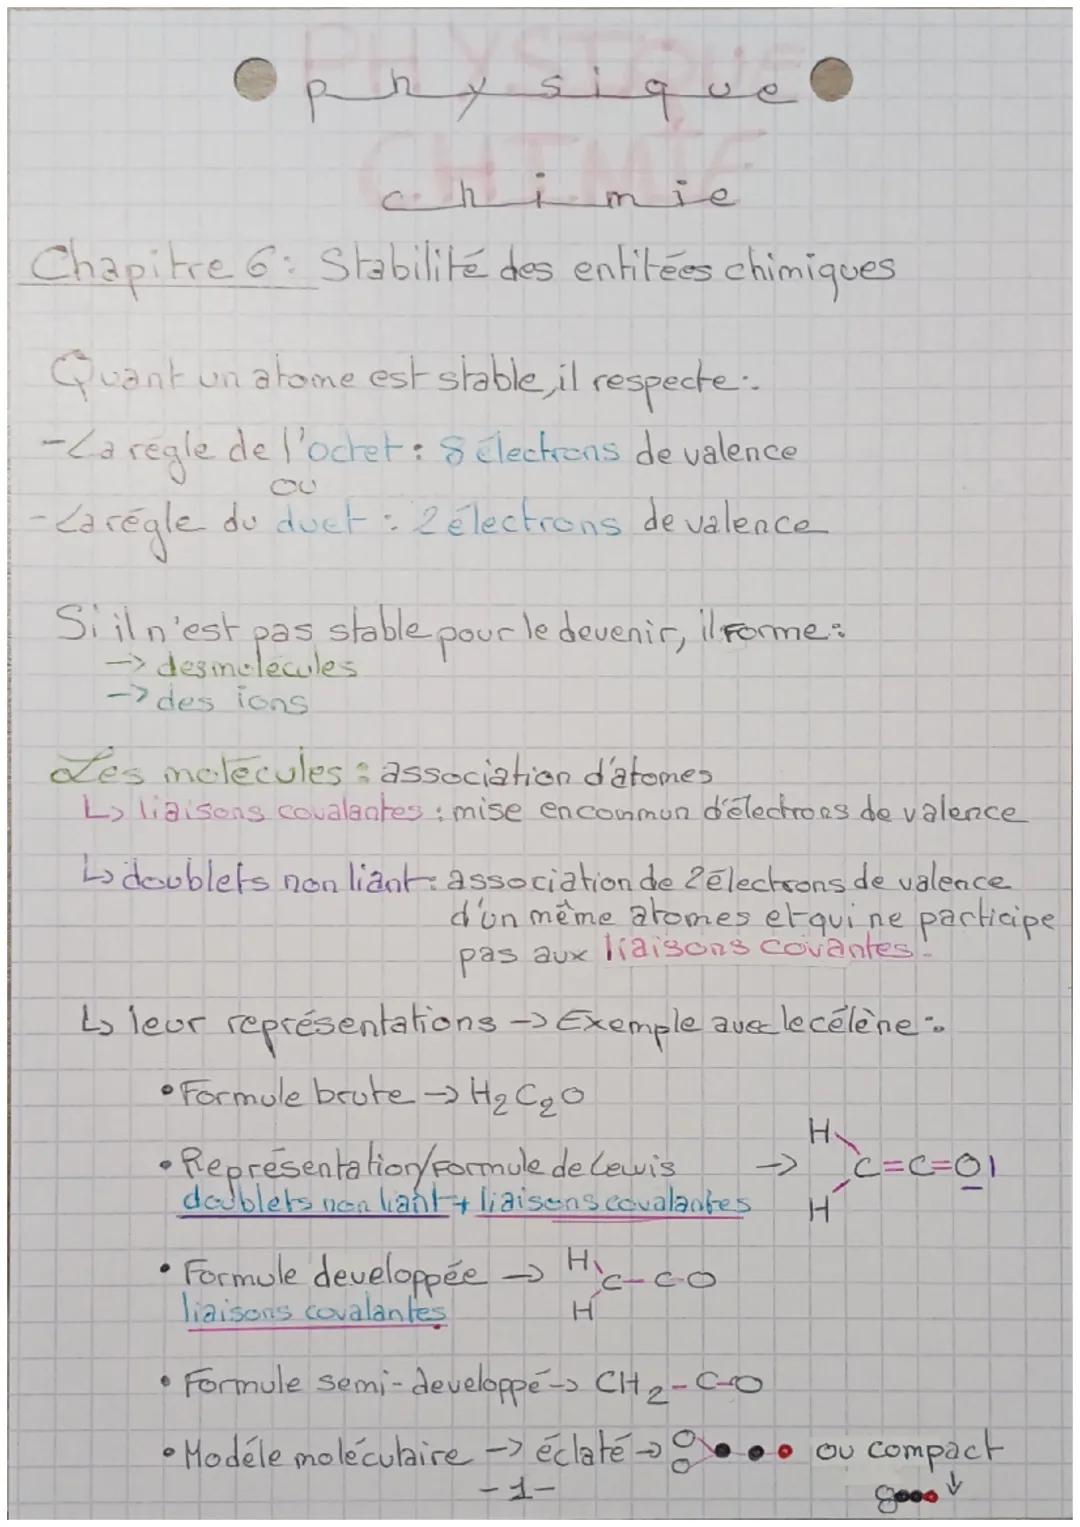 PHYSIQUE
CHIMIE
physique
chimie
Chapitre 6: Stabilité des entitées chimiques
Quant un atome est stable, il respecte:
-La régle de l'octet : 8 électrons de valence
ou
-La régle du duet : 2 électrons de valence
Si il n'est pas stable pour le devenir, il forme :
-> des molécules
-> des ions
Les molécules : association d'atomes
↳ liaisons covalantes : mise en commun d'électrons de valence
↳ doublets non liant : association de 2 électrons de valence
d'un même atomes et qui ne participe
pas aux liaisons covantes.
↳ leur représentations -> Exemple avec le célène :
• Formule brute -> H₂C₂O
• Représentation/Formule de Lewis -> H H C=C=O|
doublets non liant + liaisons covalantes
• Formule developpée -> H H C-C-O
liaisons covalantes
• Formule semi-developpé -> CH₂-C-O
• Modéle moléculaire -> éclaté -> ou compact ↓
-1-